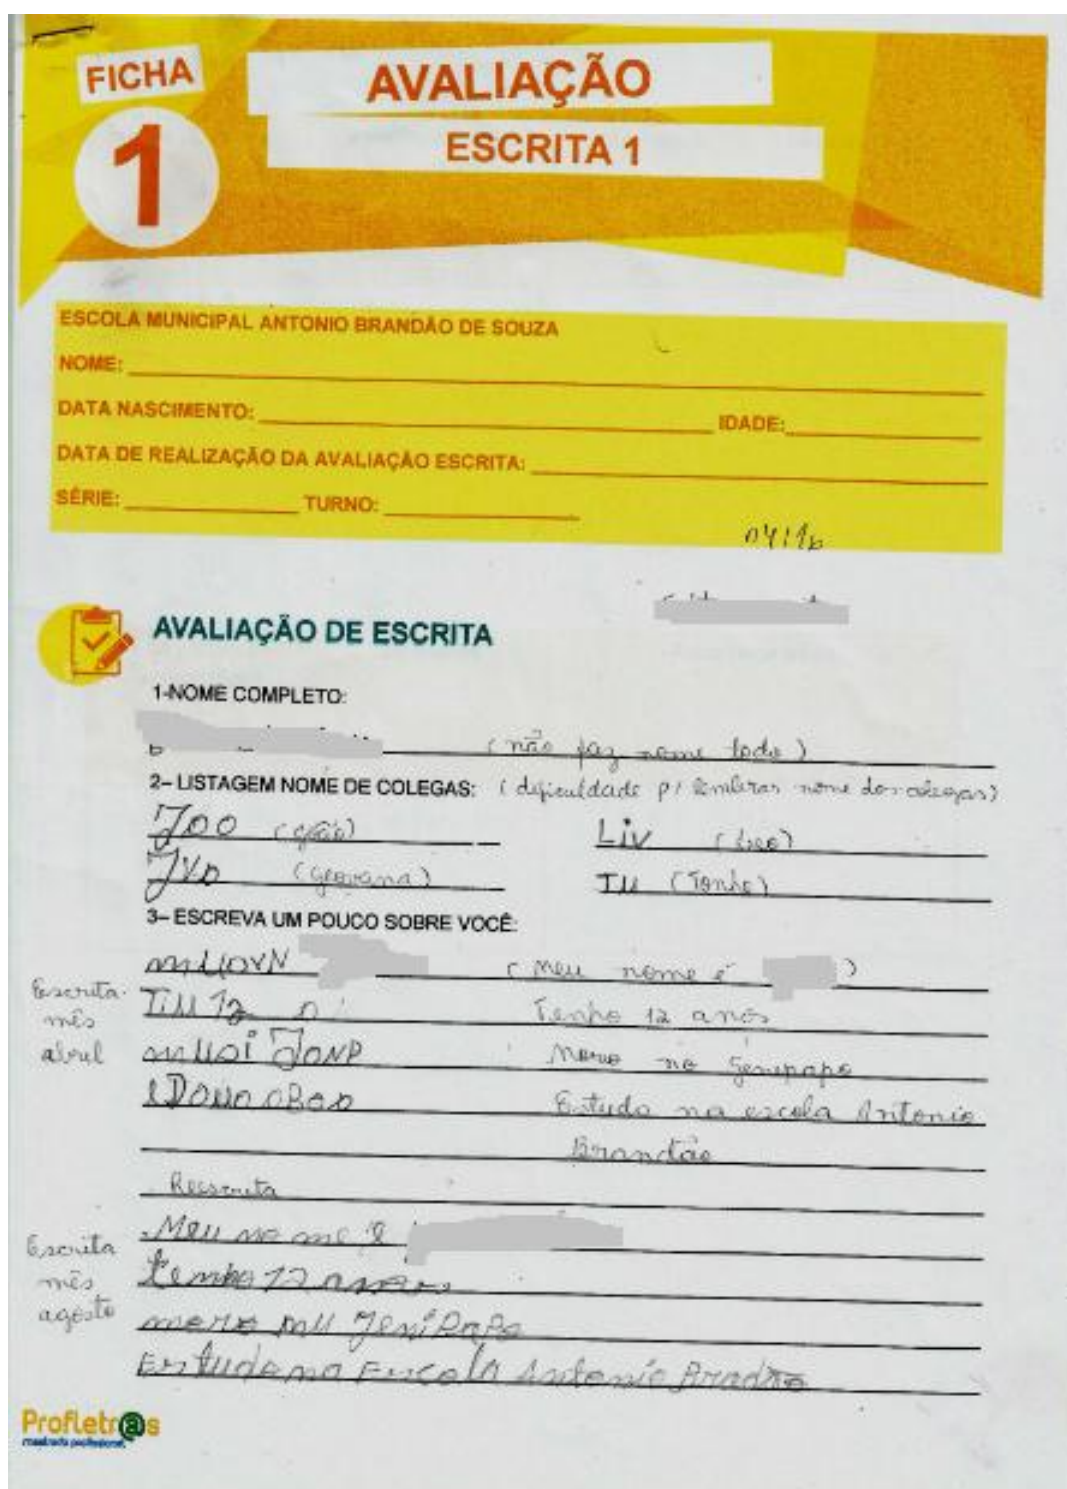 FICHA
1
AVALIAÇÃO
ESCRITA 1
ESCOLA MUNICIPAL ANTONIO BRANDÃO DE SOUZA
NOME:
DATA NASCIMENTO: IDADE:
DATA DE REALIZAÇÃO DA AVALIAÇÃO ESCRITA:
SÉRIE: TURNO:
AVALIAÇÃO DE ESCRITA
1-NOME COMPLETO:
(não faz nome todo)
2– LISTAGEM NOME DE COLEGAS: (dificuldade p/ lembrar nome dos colegas)
JOO LiV (Leo)
JVD (geovana) TU (Tonho)
3– ESCREVA UM POUCO SOBRE VOCÊ:
(Meu nome é )
Escrita mês abril
TiU 12 Tenho 12 anos
Moro no Genipapo
Estudo na escola Antonio
Brandão
Reescrita
Escrita mês agosto
Meu no me é
tenho 12
moro JeniPaPo
EsTudo na Escola Antonio Bradão
Proflet@s
mestrado profissional